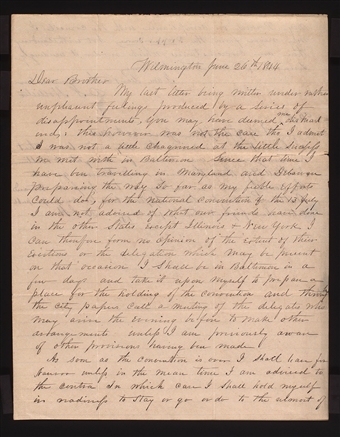 Wilmington June 24th 1844
Dear Brother
My last letter being written under rather
unpleasant feelings produced by a series of
disappointments, You may have deemed
this however was not the case tho I admit
I was not a little chagrined at the little success
I met with in Baltimore Since that time I
have been travelling in Maryland and Delaware
preparing the way so far as my feeble efforts
could do, for the National Convention of the 13 July
I am not advised of what our friends have done
in the other States except Illinois & New York I
can therefore form no opinion of the extent of their
exertions or the delegation which may be present
on that occasion I shall be in Baltimore in a
few days and take it upon myself to prepare a
place for the holding of the Convention and through
the City papers call a meeting of the delegates who
may arrive the evening before to make other
arrangements unless I am previously aware
of other provisions having been made
As soon as the Convention is over I shall leave for
Nauvoo unless in the mean time I am advised to
the contrary In which case I shall hold myself
in readiness to stay or go or to the utmost of